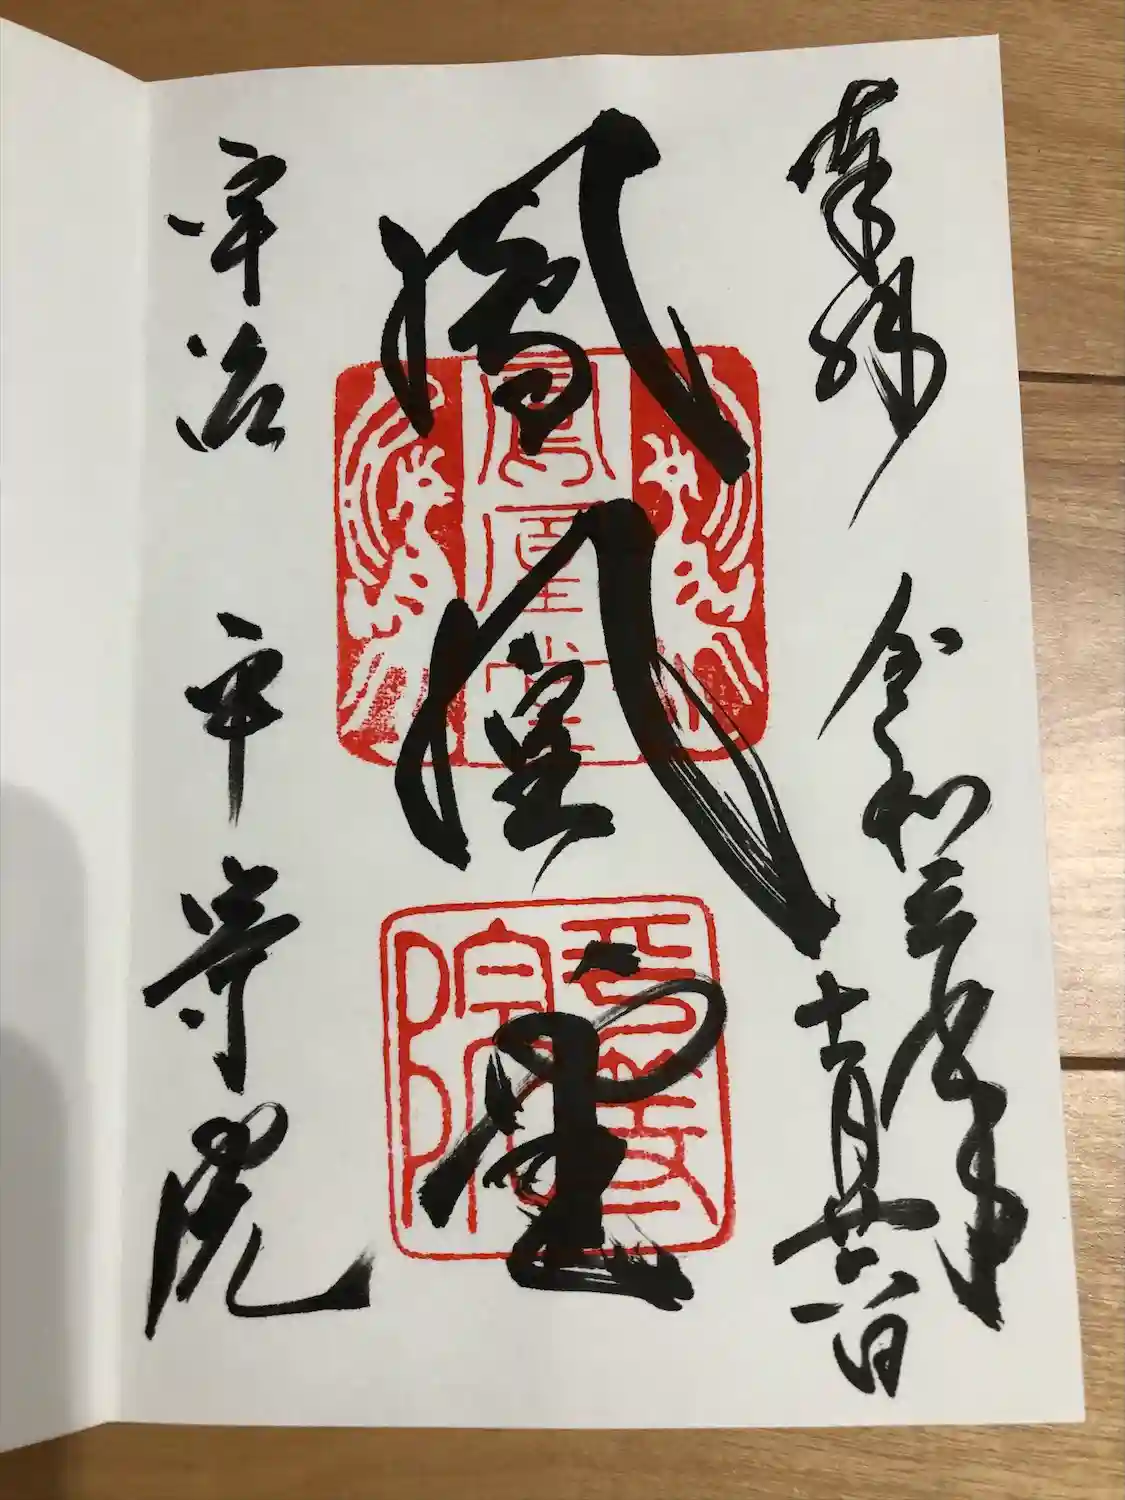 奉拝
令和三年
鳳凰堂
鳳凰堂
平等院
宇治
平等院